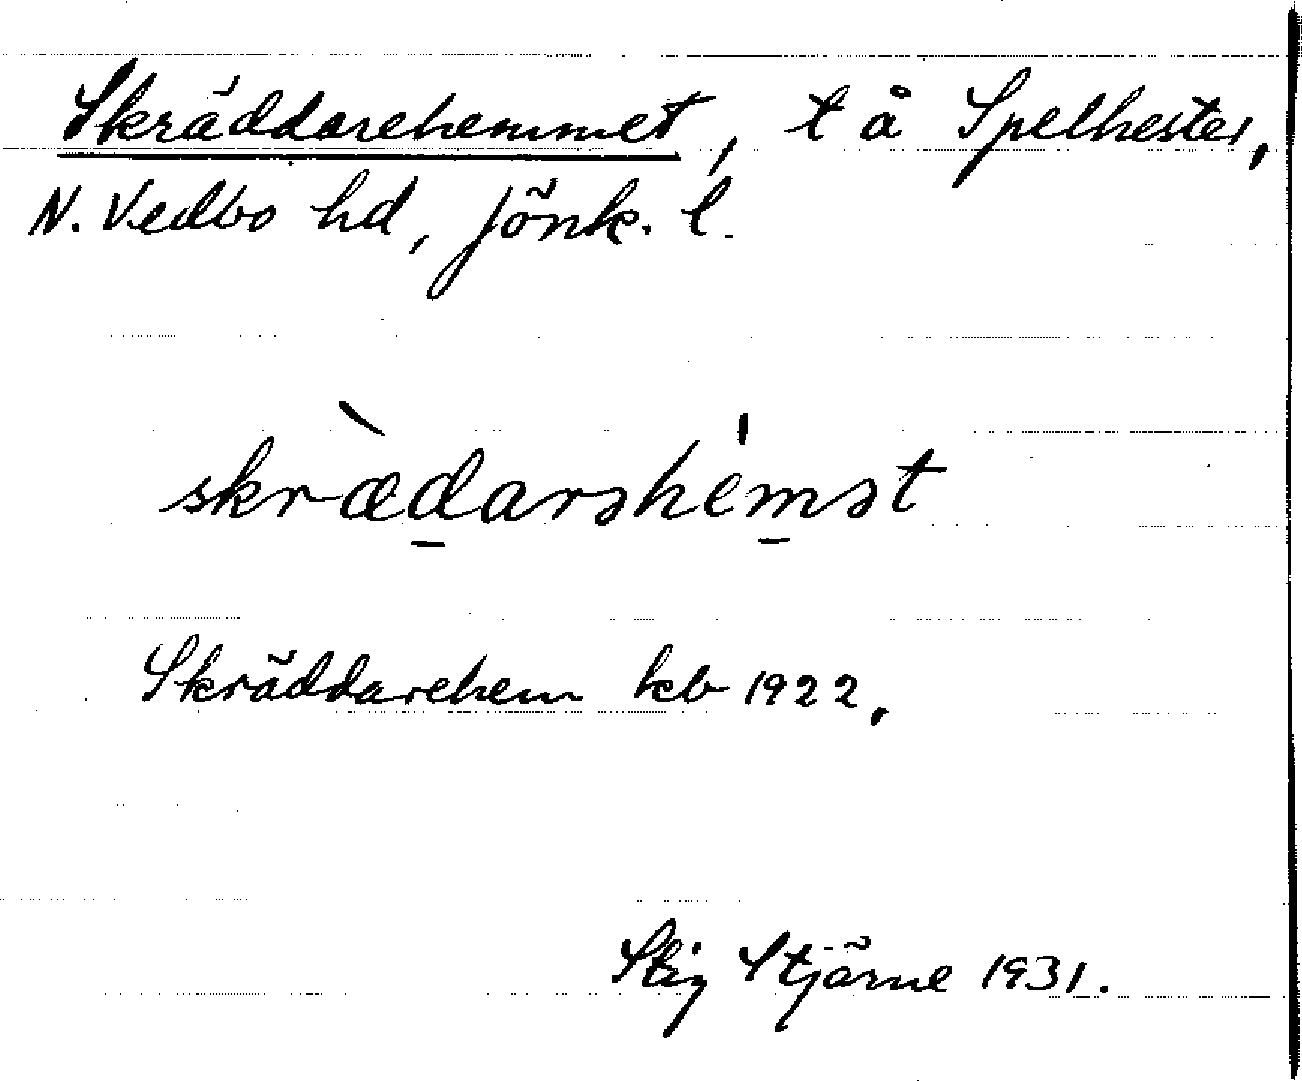 Skräddarehemmet, t å Spelhester,
N. Vedbo hd, Jönk. l.
skræ̀d̲arəhem̲ət
Skräddarehem kb 1922,
Stig Stjärne 1931.